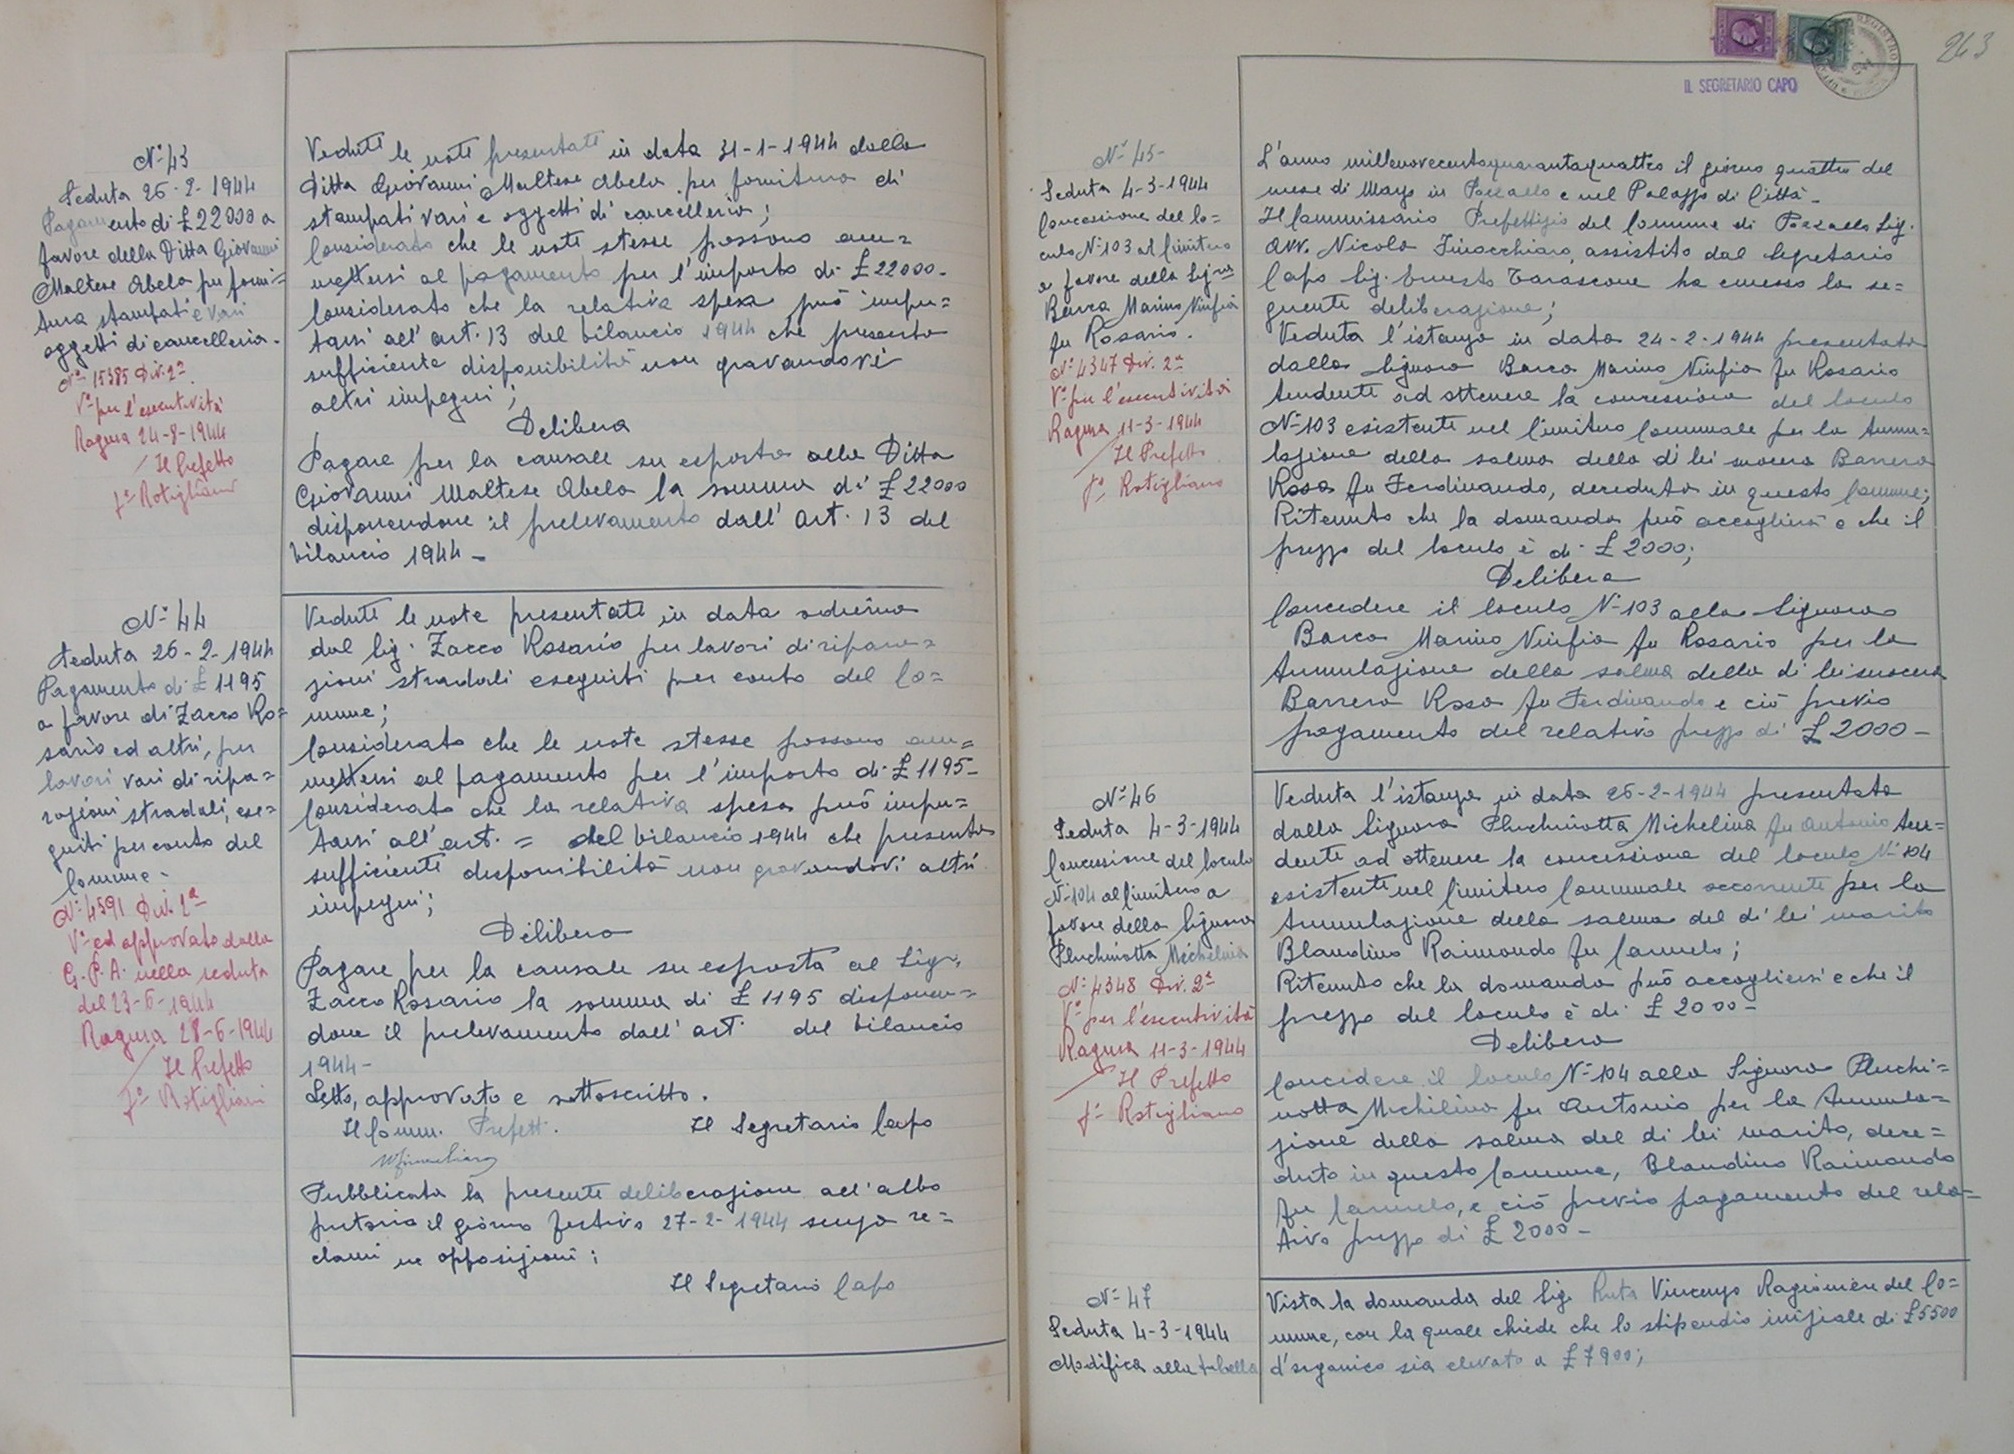 N° 43
Seduta 26-2-1944
Pagamento di £ 22000 a
favore della Ditta Giovanni
Maltese Abela per forni=
tura stampati e vari
oggetti di cancelleria.
N° 15385 Div. 2ª
V° per l'esecutività
Ragusa 24-8-1944
Il Prefetto
f° Rotigliano
Vedute le note presentate in data 31-1-1944 dalla
Ditta Giovanni Maltese Abela per fornitura di
stampati vari e oggetti di cancelleria;
Considerato che le note stesse possono am=
mettersi al pagamento per l'importo di £ 22000-
Considerato che la relativa spesa può impu=
tarsi all'art. 13 del bilancio 1944 che presenta
sufficiente disponibilità non gravandovi
altri impegni;
Delibera
Pagare per la causale su esposta alla Ditta
Giovanni Maltese Abela la somma di £ 22000
disponendone il prelevamento dall'art. 13 del
bilancio 1944 -
N° 44
Seduta 26-2-1944
Pagamento di £ 1195
a favore di Zacco Ro=
sario ed altri, per
lavori vari di ripa=
razioni stradali, ese=
guiti per conto del
Comune -
N° 4591 Div. 2ª
V° ed approvato dalla
G.P.A. nella seduta
del 23-6-1944
Ragusa 28-6-1944
Il Prefetto
f° Rotigliano
Vedute le note presentate in data odierna
dal Sig. Zacco Rosario per lavori di ripara=
zioni stradali eseguiti per conto del Co=
mune;
Considerato che le note stesse possono am=
mettersi al pagamento per l'importo di £ 1195-
Considerato che la relativa spesa può impu=
tarsi all'art. = del bilancio 1944 che presenta
sufficiente disponibilità non gravandovi altri
impegni;
Delibera
Pagare per la causale su esposta al Sig.
Zacco Rosario la somma di £ 1195 disponen=
done il prelevamento dall'art. del bilancio
1944 -
Letto, approvato e sottoscritto.
Il Comm. Prefett. Il Segretario Capo
Pubblicata la presente deliberazione all'albo
pretorio il giorno festivo 27-2-1944 senza re=
clami ne opposizioni;
Il Segretario Capo
263
IL SEGRETARIO CAPO
N° 45-
Seduta 4-3-1944
Concessione del lo=
culo N° 103 al Cimitero
a favore della Sig.ra
Barca Marino Ninfia
fu Rosario.
N° 4347 Div. 2ª
V° per l'esecutività
Ragusa 11-3-1944
Il Prefetto
f° Rotigliano
L'anno millenovecentoquarantaquattro il giorno quattro del
mese di Marzo in Pozzallo e nel Palazzo di Città-
Il Commissario Prefettizio del Comune di Pozzallo Sig.
Avv. Nicola Finocchiaro, assistito dal Segretario
Capo Sig. Ernesto Tarascone ha emesso la se=
guente deliberazione;
Veduta l'istanza in data 24-2-1944 presentata
dalla Signora Barca Marino Ninfia fu Rosario
tendente ad ottenere la concessione del loculo
N° 103 esistente nel Cimitero Comunale per la tumu=
lazione della salma della di lei suocera Barrera
Rosa fu Ferdinando, deceduta in questo Comune;
Ritenuto che la domanda può accogliersi e che il
prezzo del loculo è di £ 2000;
Delibera
Concedere il loculo N° 103 alla Signora
Barca Marino Ninfia fu Rosario per la
tumulazione della salma della di lei suocera
Barrera Rosa fu Ferdinando e ciò previo
pagamento del relativo prezzo di £ 2000 -
N° 46
Seduta 4-3-1944
Concessione del loculo
N° 104 al Cimitero a
favore della Signora
Pluchinotta Michelina
N° 4348 Div. 2ª
V° per l'esecutività
Ragusa 11-3-1944
Il Prefetto
f° Rotigliano
Veduta l'istanza in data 26-2-1944 presentata
dalla Signora Pluchinotta Michelina fu Antonio ten=
dente ad ottenere la concessione del loculo N° 104
esistente nel Cimitero Comunale occorrente per la
tumulazione della salma del di lei marito
Blandino Raimondo fu Carmelo;
Ritenuto che la domanda può accogliersi e che il
prezzo del loculo è di £ 2000 -
Delibera
Concedere il loculo N° 104 alla Signora Pluchi=
notta Michelina fu Antonio per la tumula=
zione della salma del di lei marito, dece=
duto in questo Comune, Blandino Raimondo
fu Carmelo, e ciò previo pagamento del rela=
tivo prezzo di £ 2000 -
N° 47
Seduta 4-3-1944
Modifica alla tabella
Vista la domanda del Sig. Ruta Vincenzo Ragioniere del Co=
mune, con la quale chiede che lo stipendio iniziale di £ 5500
d'organico sia elevato a £ 7900;